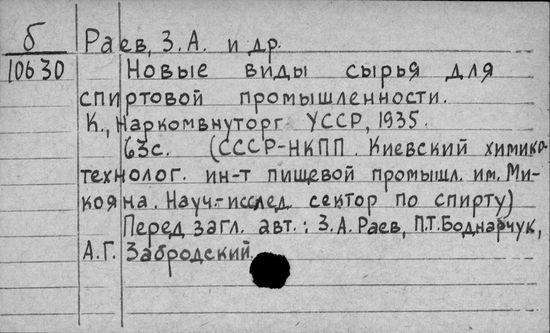 б Раев, З.А. и др.
10630 Новые виды сырья для
спиртовой промышленности.
К., Наркомвнуторг УССР, 1935.
63с. (СССР-НКПП. Киевский химико-
технолог. ин-т пищевой промышл. им. Ми-
кояна. Науч.-исслед. сектор по спирту)
Перед загл. авт.: З.А. Раев, П.Т. Боднарчук,
А.Г. Забродский.